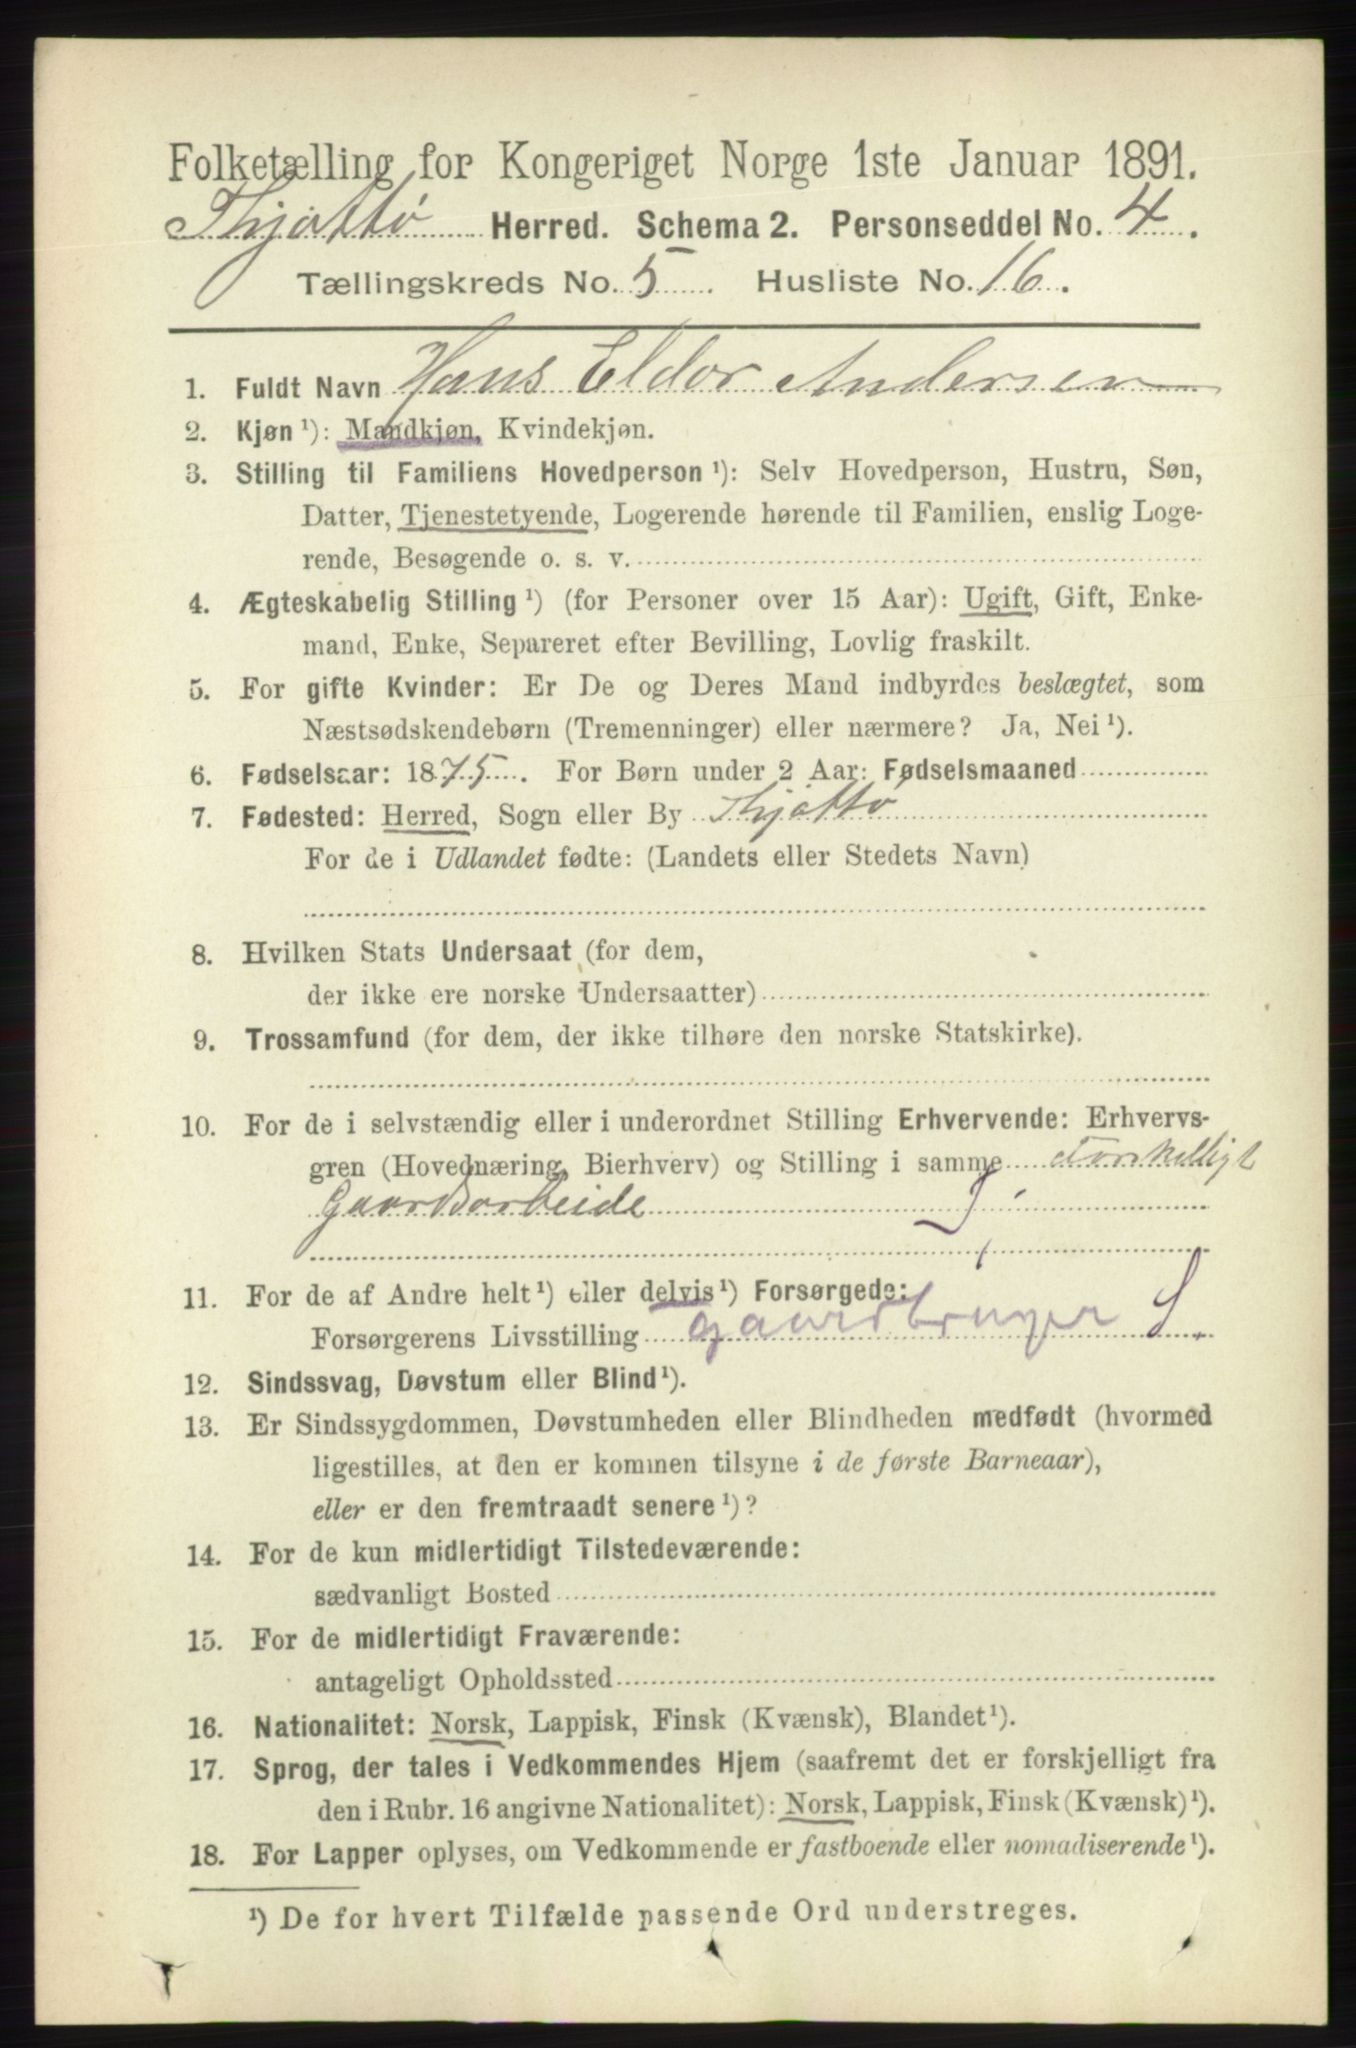 Folketælling for Kongeriget Norge 1ste Januar 1891.
Thjøttø Herred. Schema 2. Personseddel No. 4.
Tællingskreds No. 5. Husliste No. 16.
1. Fuldt Navn Hans Eldor Andersen
2. Kjøn ¹): Mandkjøn, Kvindekjøn.
3. Stilling til Familiens Hovedperson ¹): Selv Hovedperson, Hustru, Søn,
Datter, Tjenestetyende, Logerende hørende til Familien, enslig Loge-
rende, Besøgende o. s. v.
4. Ægteskabelig Stilling ¹) (for Personer over 15 Aar): Ugift, Gift, Enke-
mand, Enke, Separeret efter Bevilling, Lovlig fraskilt.
5. For gifte Kvinder: Er De og Deres Mand indbyrdes beslægtet, som
Næstsødskendebørn (Tremenninger) eller nærmere? Ja, Nei ¹).
6. Fødselsaar: 1875. For Børn under 2 Aar: Fødselsmaaned
7. Fødested: Herred, Sogn eller By Thjøttø
For de i Udlandet fødte: (Landets eller Stedets Navn)
8. Hvilken Stats Undersaat (for dem,
der ikke ere norske Undersaatter)
9. Trossamfund (for dem, der ikke tilhøre den norske Statskirke).
10. For de i selvstændig eller i underordnet Stilling Erhvervende: Erhvervs-
gren (Hovednæring, Bierhverv) og Stilling i samme Forskelligt
Gaardsarbeide
11. For de af Andre helt ¹) eller delvis ¹) Forsørgede:
Forsørgerens Livsstilling gaardbruger S.
12. Sindssvag, Døvstum eller Blind ¹).
13. Er Sindssygdommen, Døvstumheden eller Blindheden medfødt (hvormed
ligestilles, at den er kommen tilsyne i de første Barneaar),
eller er den fremtraadt senere ¹)?
14. For de kun midlertidigt Tilstedeværende:
sædvanligt Bosted
15. For de midlertidigt Fraværende:
antageligt Opholdssted
16. Nationalitet: Norsk, Lappisk, Finsk (Kvænsk), Blandet ¹).
17. Sprog, der tales i Vedkommendes Hjem (saafremt det er forskjelligt fra
den i Rubr. 16 angivne Nationalitet): Norsk, Lappisk, Finsk (Kvænsk) ¹).
18. For Lapper oplyses, om Vedkommende er fastboende eller nomadiserende ¹).
¹) De for hvert Tilfælde passende Ord understreges.